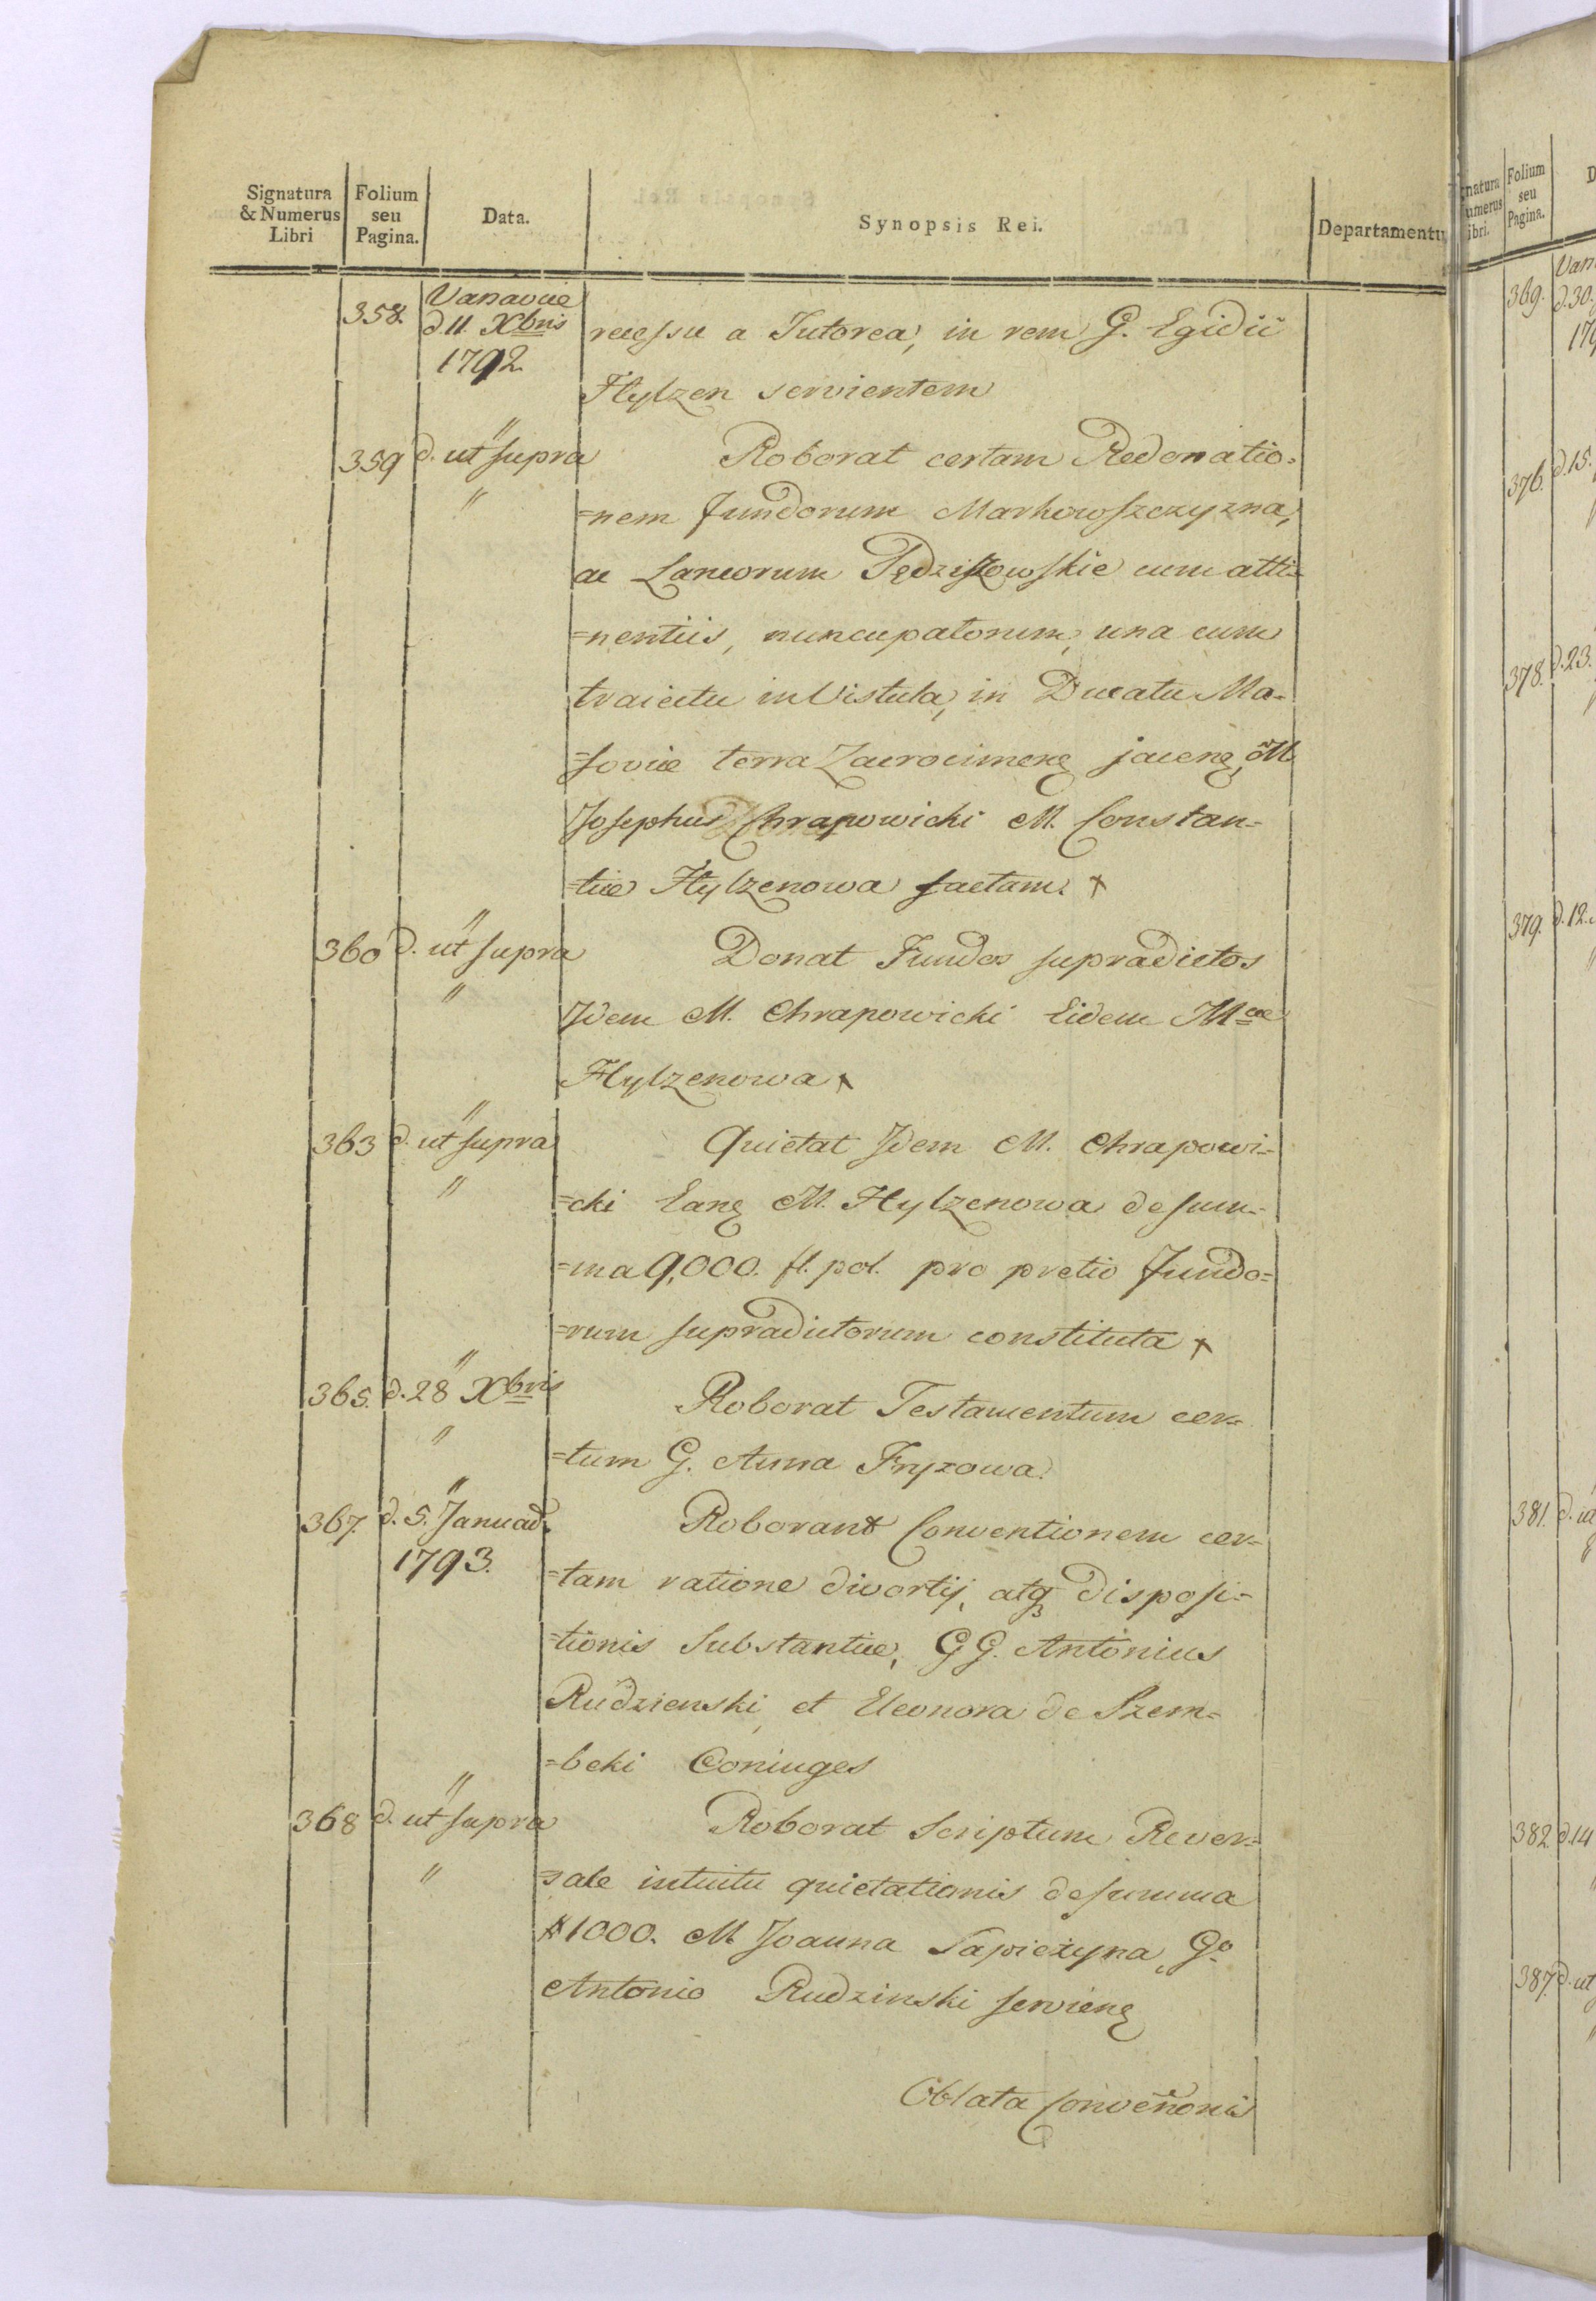 Signatura & Numerus Libri | Folium seu Pagina. | Data. | Synopsis Rei. | Departamentu
358. Varsaviae
d 11. Xbris recessu a Tutorea, in rem G. Egidii
1792. Hylzen servientem
359 d. ut supra Roborat certam Redonatio=
" =nem fundorum Markowszczyzna,
ac Laneorum Pędziszowskie cum atti=
=nentiis, nuncupatorum, una cum
traiectu in Vistula, in Ducatu Ma=
=soviae terra Zacrocimens jacens, M.
Josephus Chrapowicki M. Constan=
=tiae Hylzenowa factam. +
360 d. ut supra Donat Fundos supradictos
" Idem M. Chrapowicki Eidem Mcae
Hylzenowa +
363 d. ut supra Quietat Idem M. Chrapowi=
" =cki Eand M. Hylzenowa de sum=
=ma 9,000. fl. pol. pro pretio fundo=
=rum supradictorum constituta +
365. d. 28 Xbris Roborat Testamentum cer=
" =tum G. Anna Fryzowa.
367. d. 5. Januar. Roborant Conventionem cer=
1793. =tam ratione divortij, atq disposi=
=tionis Substantiae, GG. Antonius
Rudzienski et Eleonora de Szem=
=beki Coniuges
368 d. ut supra Roborat Scriptum Rever=
" =sale intuitu quietationis de summa
# 1000. M. Joanna Sapieżyna, Go
Antonio Rudzinski serviens
Oblata Conventionis
gnatura umerus ibri. | Folium seu Pagina. | D
369. Van
d. 30.
179
376. d. 15.
378. d. 23.
379. d. 12.
381. d.
382. d. 14
387 d. ut